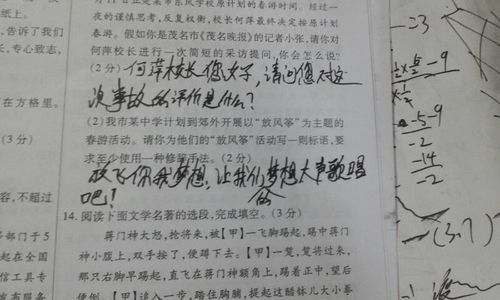 纸上。
告诉了我们
长,专心致志,
在方格里。
(3分)
容,不超过
部门于5
起在全国
信工具专
夜的谨慎思考,反复权衡,校长何萍最终决定按原计划
春游。假如你是茂名市《茂名晚报》的记者小张,请你对
何萍校长进行一次简短的采访提问,你会怎么说?
(2分)何萍校长您好,请问您对这
次事故的评价是什么?
(2)我市某中学计划到郊外开展以“放风筝”为主题的
春游活动。请你为他们的“放风筝”活动写一则标语,要
求至少使用一种修辞手法。(2分)
放飞你我梦想,让我们梦想大声歌唱
吧!
14. 阅读下面文学名著的选段,完成填空。(3分)
蒋门神大怒,抢将来,被【甲】一飞脚踢起,踢中蒋门
神小腹上,双手按了,便蹲下去。【甲】一踅,踅将过来,
那只右脚早踢起,直飞在蒋门神额角上,踢着正中,望后
便倒。【甲】追入一步,踏住胸脯,提起这醋钵儿大小拳
-5-9
-2
-14
-2
(3.9)